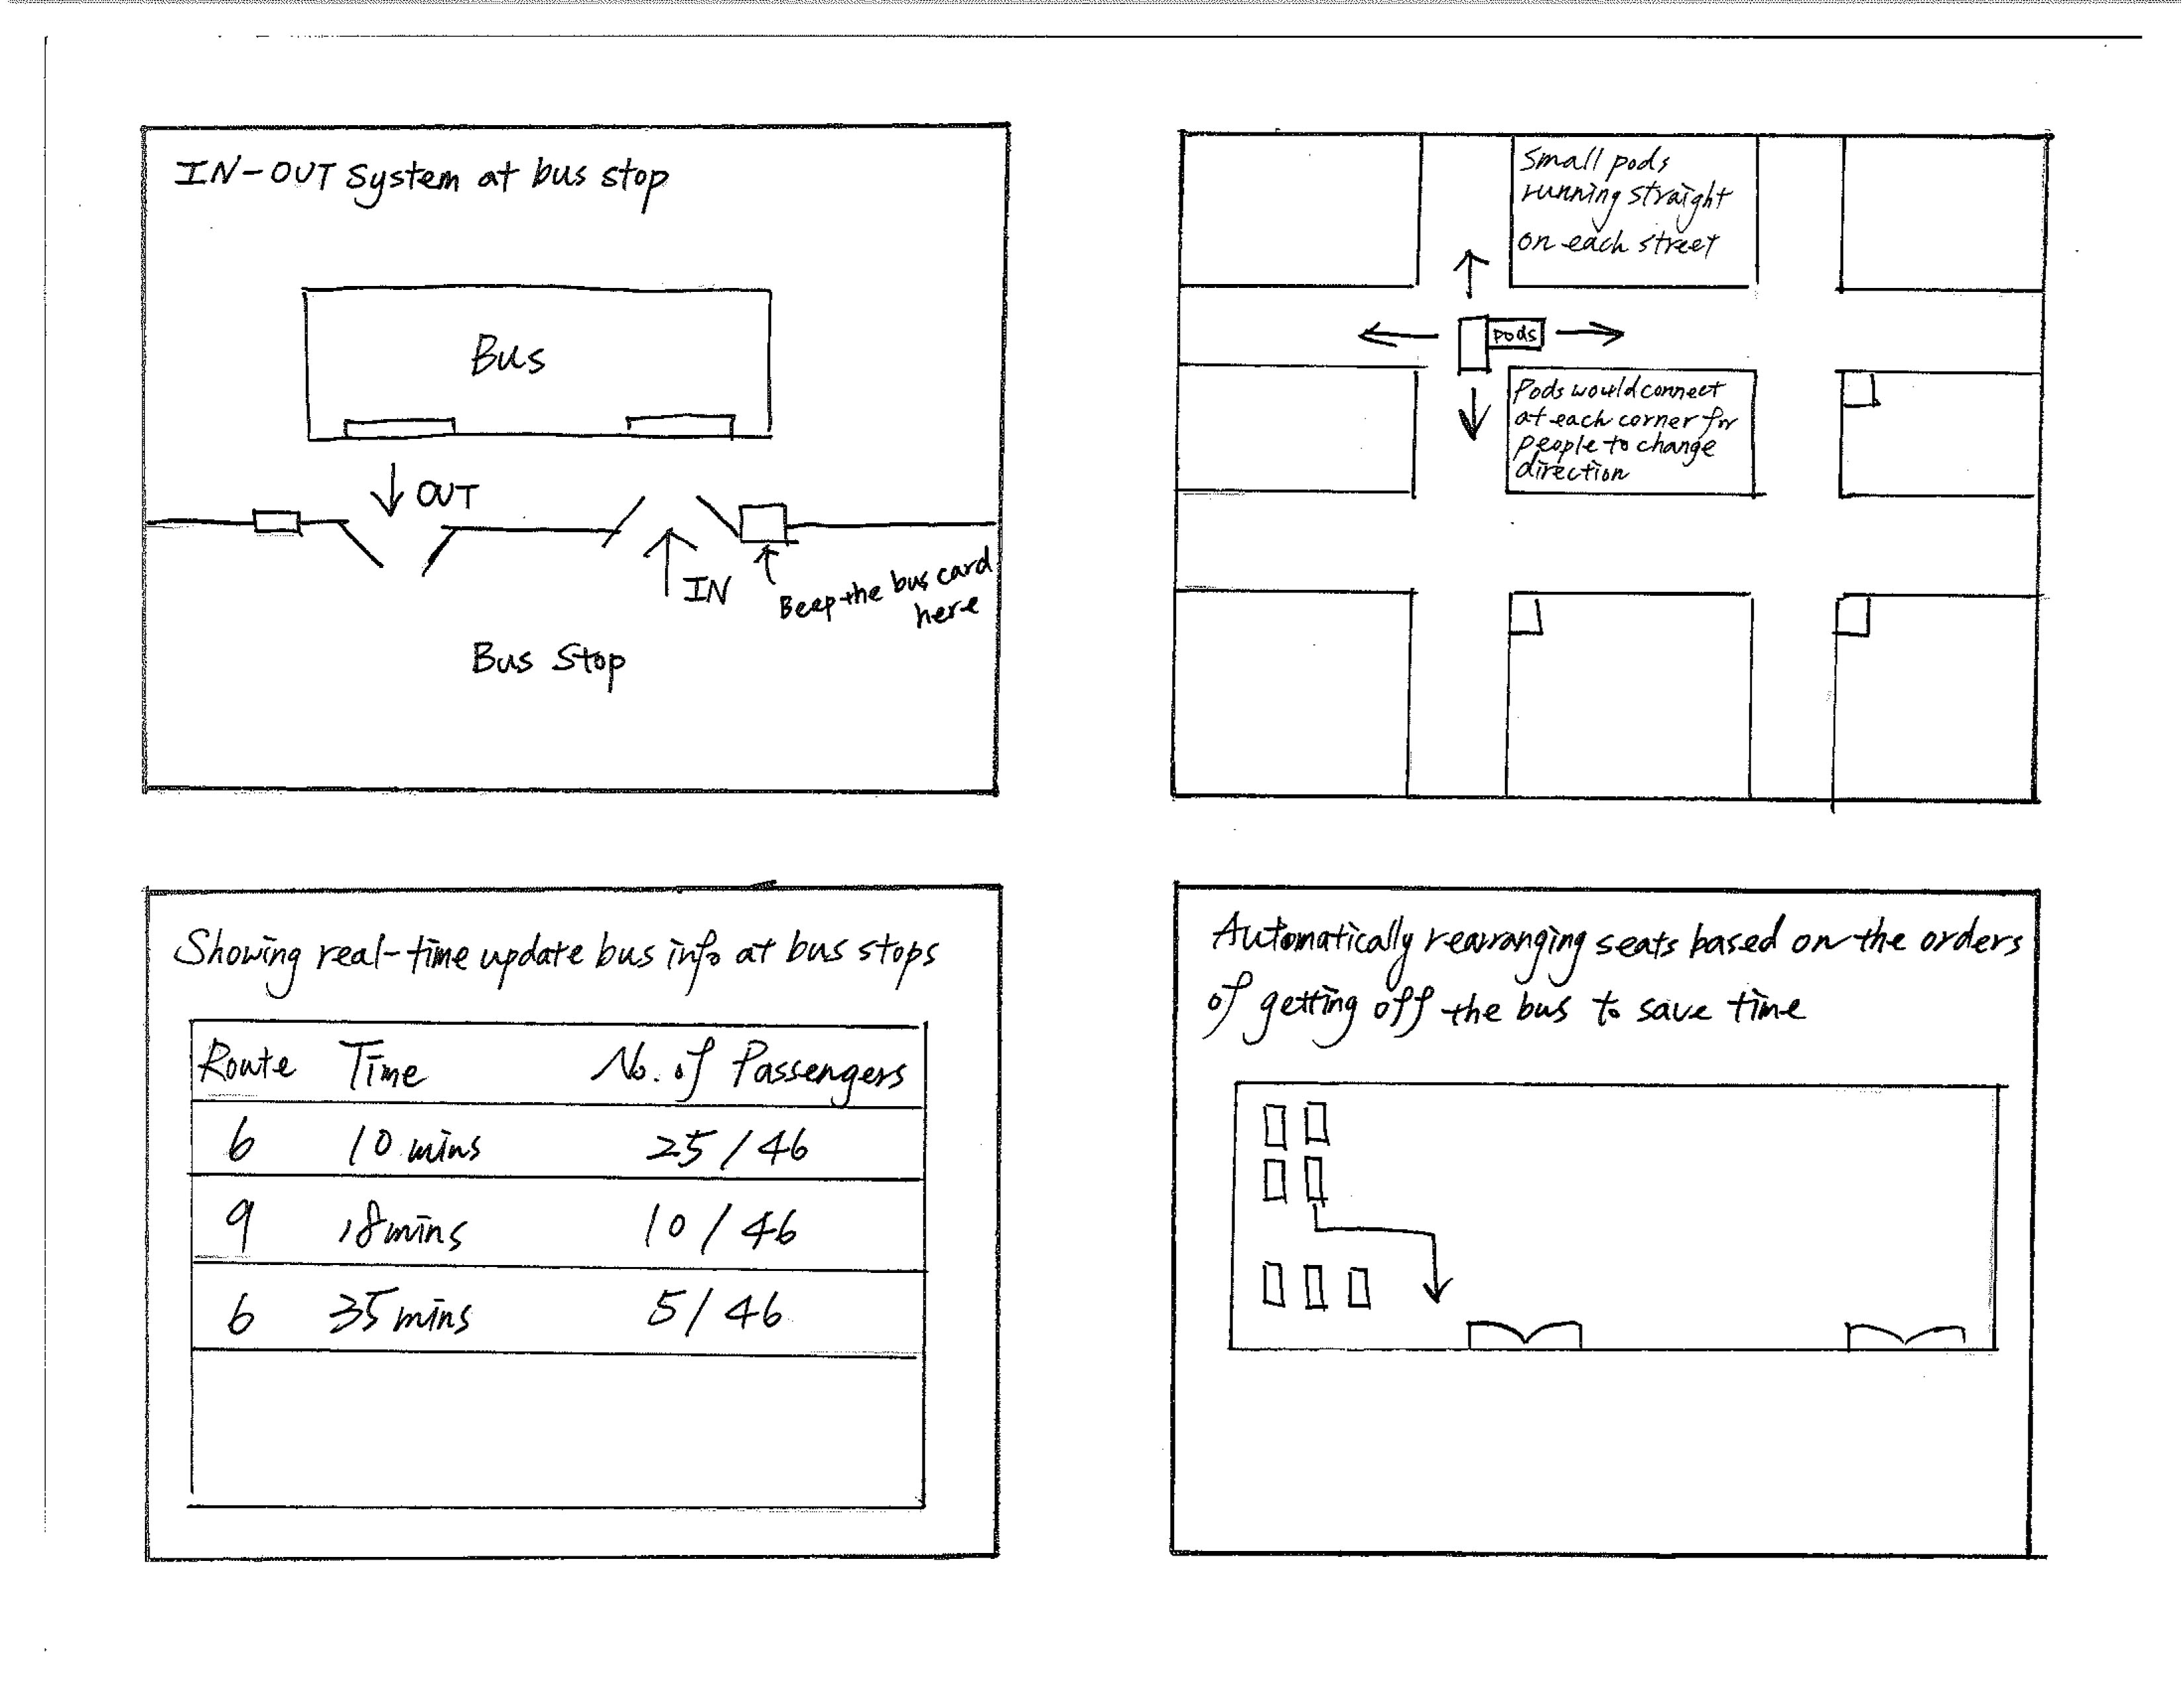 IN-OUT System at bus stop
Bus
OUT
IN
Beep the bus card
here
Bus Stop
Small pods
running straight
on each street
Pods
Pods would connect
at each corner for
people to change
direction
Showing real-time update bus info at bus stops
Route Time No. of Passengers
6 10 mins 25/46
9 18 mins 10/46
6 35 mins 5/46
Automatically rearranging seats based on the orders
of getting off the bus to save time